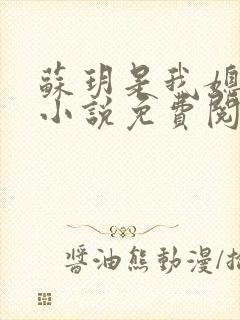 蘇玥是我媳
小說免費閱
醬油熊動漫/插